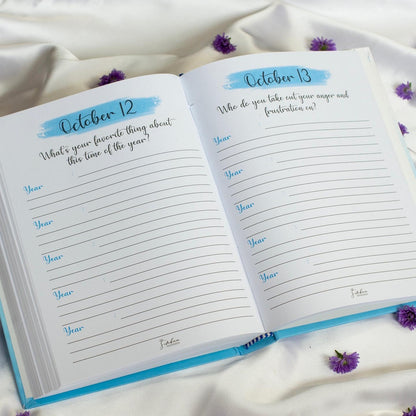 October 12
What's your favorite thing about
this time of the year?
Year
Year
Year
Year
Year
October 13
Who do you take out your anger and
frustration on?
Year
Year
Year
Year
Year